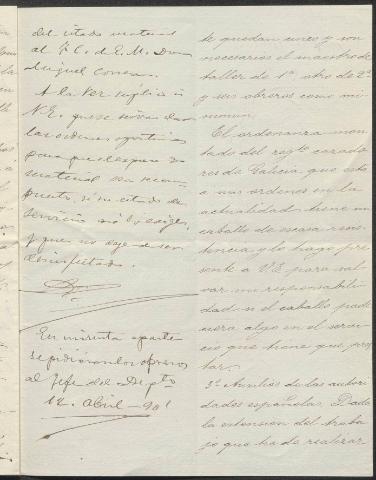 del citado material
al T.C. de E.M. Don
Miguel Correa.
A la vez suplico á
V.E. que se sirva dar
las ordenes oportunas
para que despues
material sea recom-
puesto, si su estado de
servicio no lo exige,
y que no deje de ser
desinfectado.
En minuta aparte
se pidieron los obreros
al Jefe del Depto
12. Abril - 901
te quedan cinco y son
necesarios el maestro de
taller de 1ª otro de 2ª
y seis obreros como mi
nimum.
El ordenanza mon
tado del regto cazado
res de Galicia, que está
a mis ordenes en la
actualidad tiene mi
caballo de escasa resis
tencia y lo hago pre
sente a V.E. para sal
var mi responsabili
dad si el caballo pade
ciera algo en el servi
cio que tiene que pres
tar.
3º Auxilios de las autori
dades españolas. Dada
la extension del traba
jo que ha de realizar